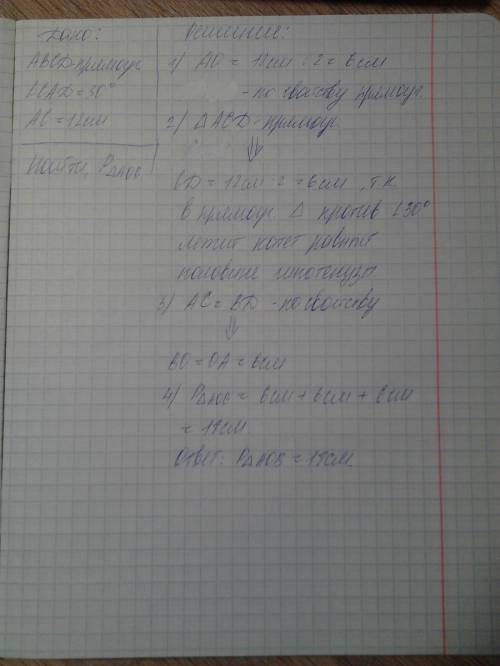 Дано:
ABCD-прямоуг.
∠CAD=30°
AC=12см
Найти: P△AOB
Решение:
1) AO = 12см : 2 = 6см
- по свойству прямоуг.
2) △ACD-прямоуг.
⇓
CD = 12см : 2 = 6см, т.к.
в прямоуг. △ против ∠30°
лежит катет равный
половине гипотенузы
3) AC = BD - по свойству
⇓
BO = OA = 6см
4) P△AOB = 6см + 6см + 6см
= 18см
Ответ: P△AOB = 18см